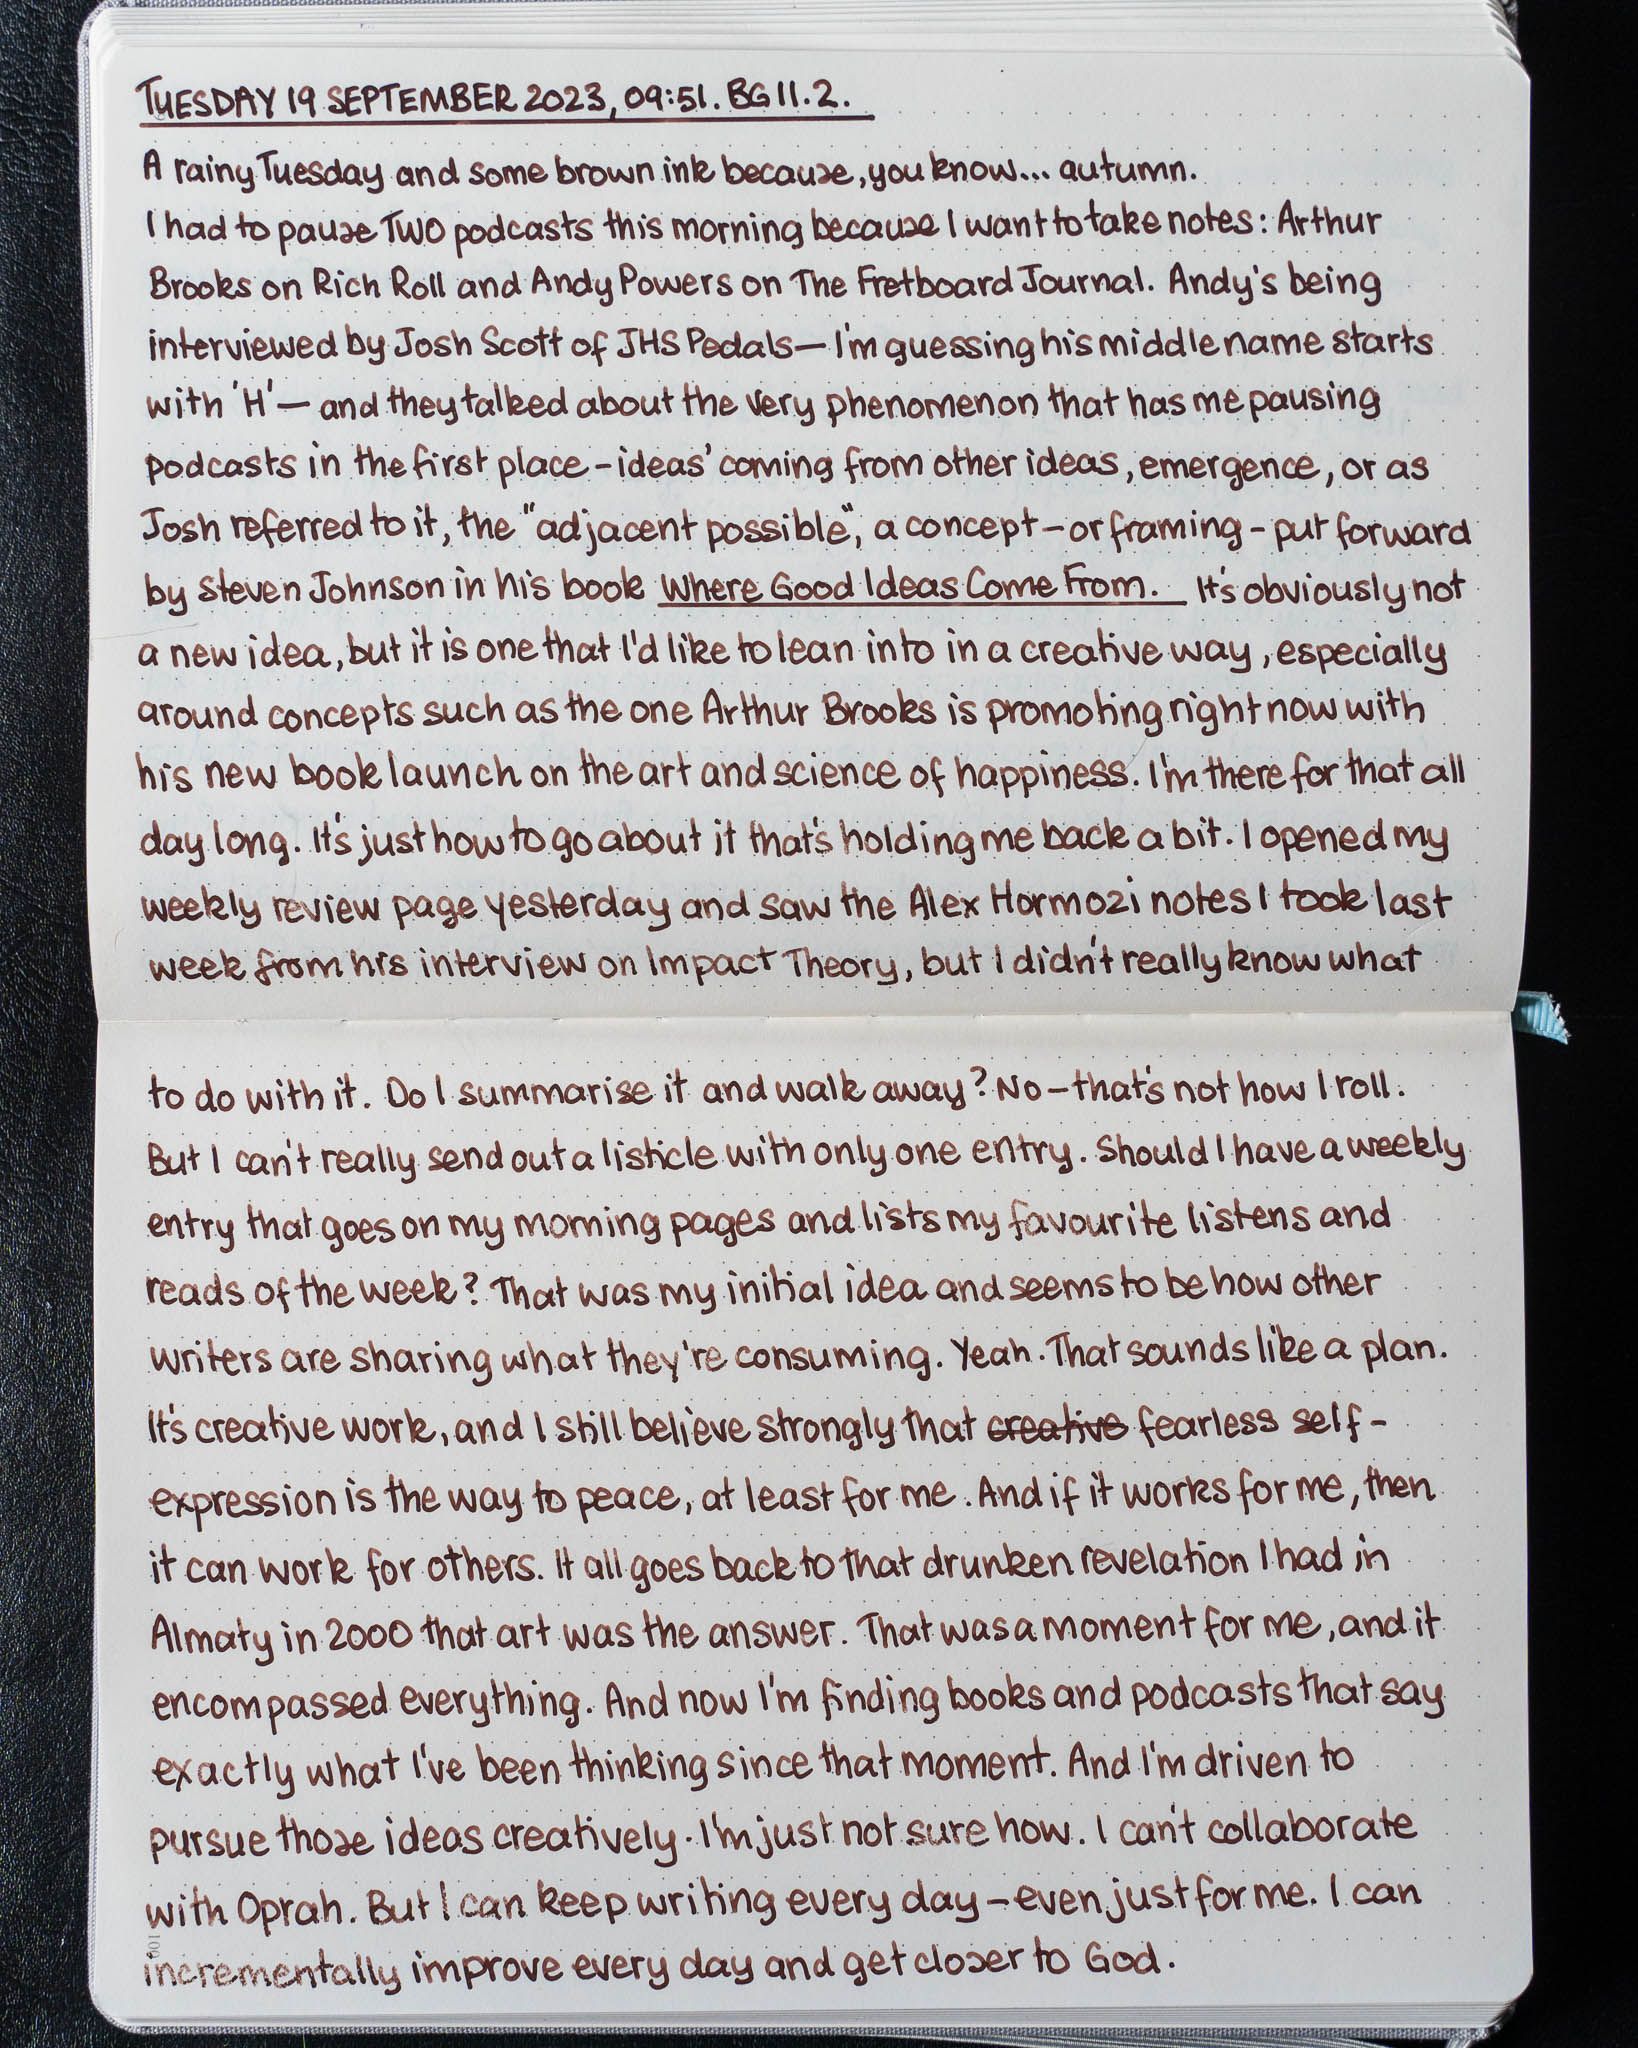 TUESDAY 19 SEPTEMBER 2023, 09:51. BG 11.2.
A rainy Tuesday and some brown ink because, you know... autumn.
I had to pause TWO podcasts this morning because I want to take notes: Arthur
Brooks on Rich Roll and Andy Powers on The Fretboard Journal. Andy's being
interviewed by Josh Scott of JHS Pedals — I'm guessing his middle name starts
with 'H' — and they talked about the very phenomenon that has me pausing
podcasts in the first place - ideas' coming from other ideas, emergence, or as
Josh referred to it, the "adjacent possible", a concept - or framing - put forward
by Steven Johnson in his book Where Good Ideas Come From. It's obviously not
a new idea, but it is one that I'd like to lean into in a creative way, especially
around concepts such as the one Arthur Brooks is promoting right now with
his new book launch on the art and science of happiness. I'm there for that all
day long. It's just how to go about it that's holding me back a bit. I opened my
weekly review page yesterday and saw the Alex Hormozi notes I took last
week from his interview on Impact Theory, but I didn't really know what
to do with it. Do I summarise it and walk away? No - that's not how I roll.
But I can't really send out a listicle with only one entry. Should I have a weekly
entry that goes on my morning pages and lists my favourite listens and
reads of the week? That was my initial idea and seems to be how other
writers are sharing what they're consuming. Yeah. That sounds like a plan.
It's creative work, and I still believe strongly that creative fearless self-
expression is the way to peace, at least for me. And if it works for me, then
it can work for others. It all goes back to that drunken revelation I had in
Almaty in 2000 that art was the answer. That was a moment for me, and it
encompassed everything. And now I'm finding books and podcasts that say
exactly what I've been thinking since that moment. And I'm driven to
pursue those ideas creatively. I'm just not sure how. I can't collaborate
with Oprah. But I can keep writing every day - even just for me. I can
incrementally improve every day and get closer to God.